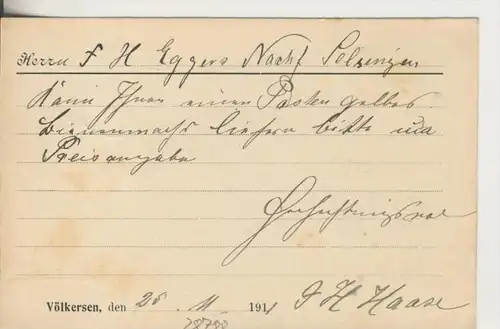 Herrn F H Eggers Nachf Selsingen
Kann Ihnen einen Posten gelbes
Bienenwachs liefern bitte um
Preisangabe
Hochachtungsvoll
Völkersen, den 25. 11 1911 J H Haase
28700